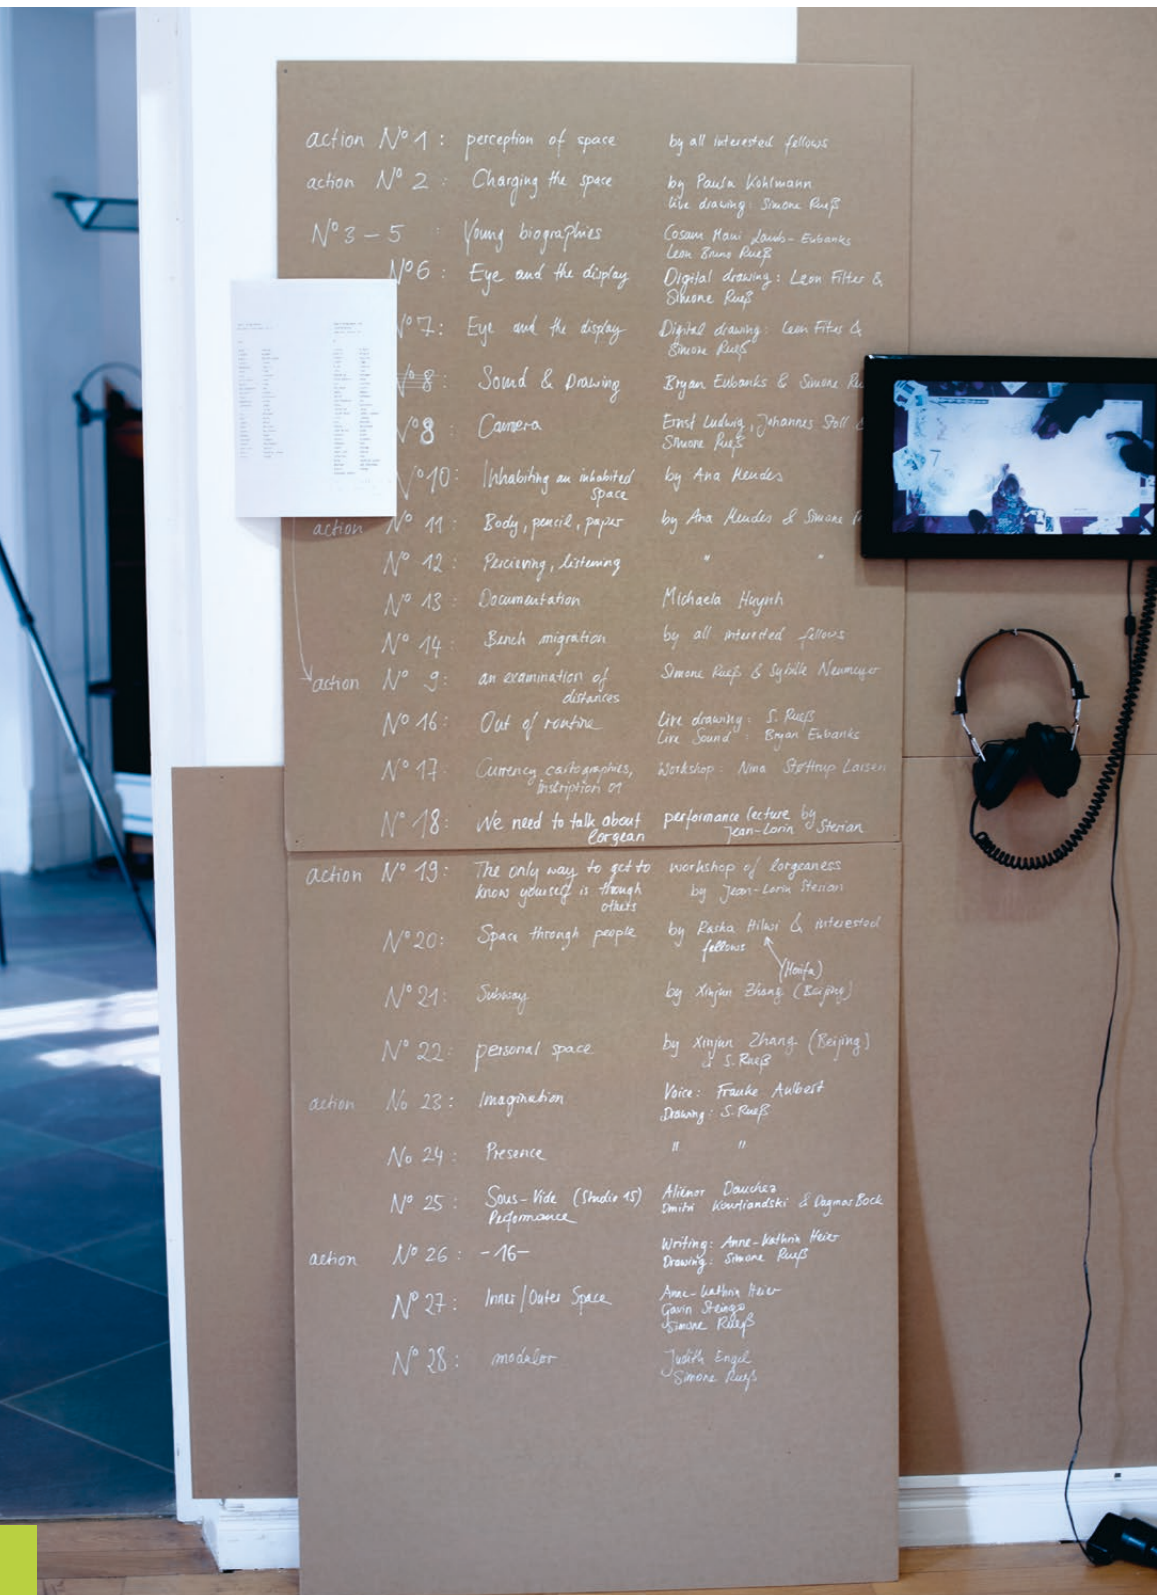 action Nº 1 : perception of space by all interested fellows
action Nº 2 : Charging the space by Paula Kohlmann
live drawing : Simone Rueß
Nº 3 – 5 : Young biographies Cosam Maui Lamb-Eubanks
Leon Bruno Rueß
Nº 6 : Eye and the display Digital drawing : Leon Filter &
Simone Rueß
Nº 7 : Eye and the display Digital drawing : Leon Filter &
Simone Rueß
Nº 8 : Sound & Drawing Bryan Eubanks & Simone
Nº 8 : Camera Ernst Ludwig, Johannes Stoll &
Simone Rueß
Nº 10 : Inhabiting an inhabited by Ana Mendes
space
action Nº 11 : Body, pencil, paper by Ana Mendes & Simone
Nº 12 : Percieving, listening " "
Nº 13 : Documentation Michaela Huynh
Nº 14 : Bench migration by all interested fellows
action Nº 9 : an examination of Simone Rueß & Sybille Neumeyer
distances
Nº 16 : Out of routine Live drawing : S. Rueß
Live Sound : Bryan Eubanks
Nº 17 : Currency cartographies, Workshop : Nina Støttrup Larsen
Inscription 01
Nº 18 : We need to talk about performance lecture by
lorgean Jean-Lorin Sterian
action Nº 19 : The only way to get to workshop of lorgeaness
know yourself is through by Jean-Lorin Sterian
others
Nº 20 : Space through people by Rasha Hilwi & interested
fellows
(Haifa)
Nº 21 : Subway by Xinjun Zhang (Beijing)
Nº 22 : personal space by Xinjun Zhang (Beijing)
& S. Rueß
action No 23 : Imagination Voice : Frauke Aulbert
Drawing : S. Rueß
No 24 : Presence " "
Nº 25 : Sous-Vide (Studio 15) Aliénor Dauchez
Performance Dmitri Kourliandski & Dagmar Bock
action Nº 26 : -16- Writing : Anne-Kathrin Heier
Drawing : Simone Rueß
Nº 27 : Inner / Outer Space Anne-Kathrin Heier
Gavin Steingo
Simone Rueß
Nº 28 : modulor Judith Engel
Simone Rueß